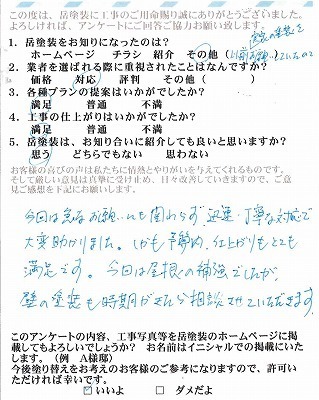 この度は、岳塗装に工事のご用命賜り誠にありがとうございました。
よろしければ、アンケートにご回答ご協力お願い致します。
1. 岳塗装をお知りになったのは?
ホームページ チラシ 紹介 その他(
2. 業者を選ばれる際に重視されたことはなんですか?
価格 対応 評判 その他( )
3. 各種プランの提案はいかがでしたか?
満足 普通 不満
4. 工事の仕上がりはいかがでしたか?
満足 普通 不満
5. 岳塗装は、お知り合いに紹介しても良いと思いますか?
思う どちらでもない 思わない
お客様の喜びの声は私たちに情熱とやりがいを与えてくれるものです。
そして厳しい意見は真摯に受け止め、日々改善していきますので、ご意
見ご感想を下記にお願します。
今回は急なお願いにも関わらず、迅速・丁寧な対応で
大変助かりました。しかも 仕上がりもとても
満足です。今回は屋根の補強でしたが、
壁の塗装も時期がきたら相談させていただきます。
このアンケートの内容、工事写真等を岳塗装のホームページに掲
載してもよろしいでしょうか? お名前はイニシャルでの掲載にいた
します。(例 A様邸)
今後塗り替えをお考えのお客様のご参考になりますので、許可い
ただければ幸いです。
☑いいよ □ダメだよ